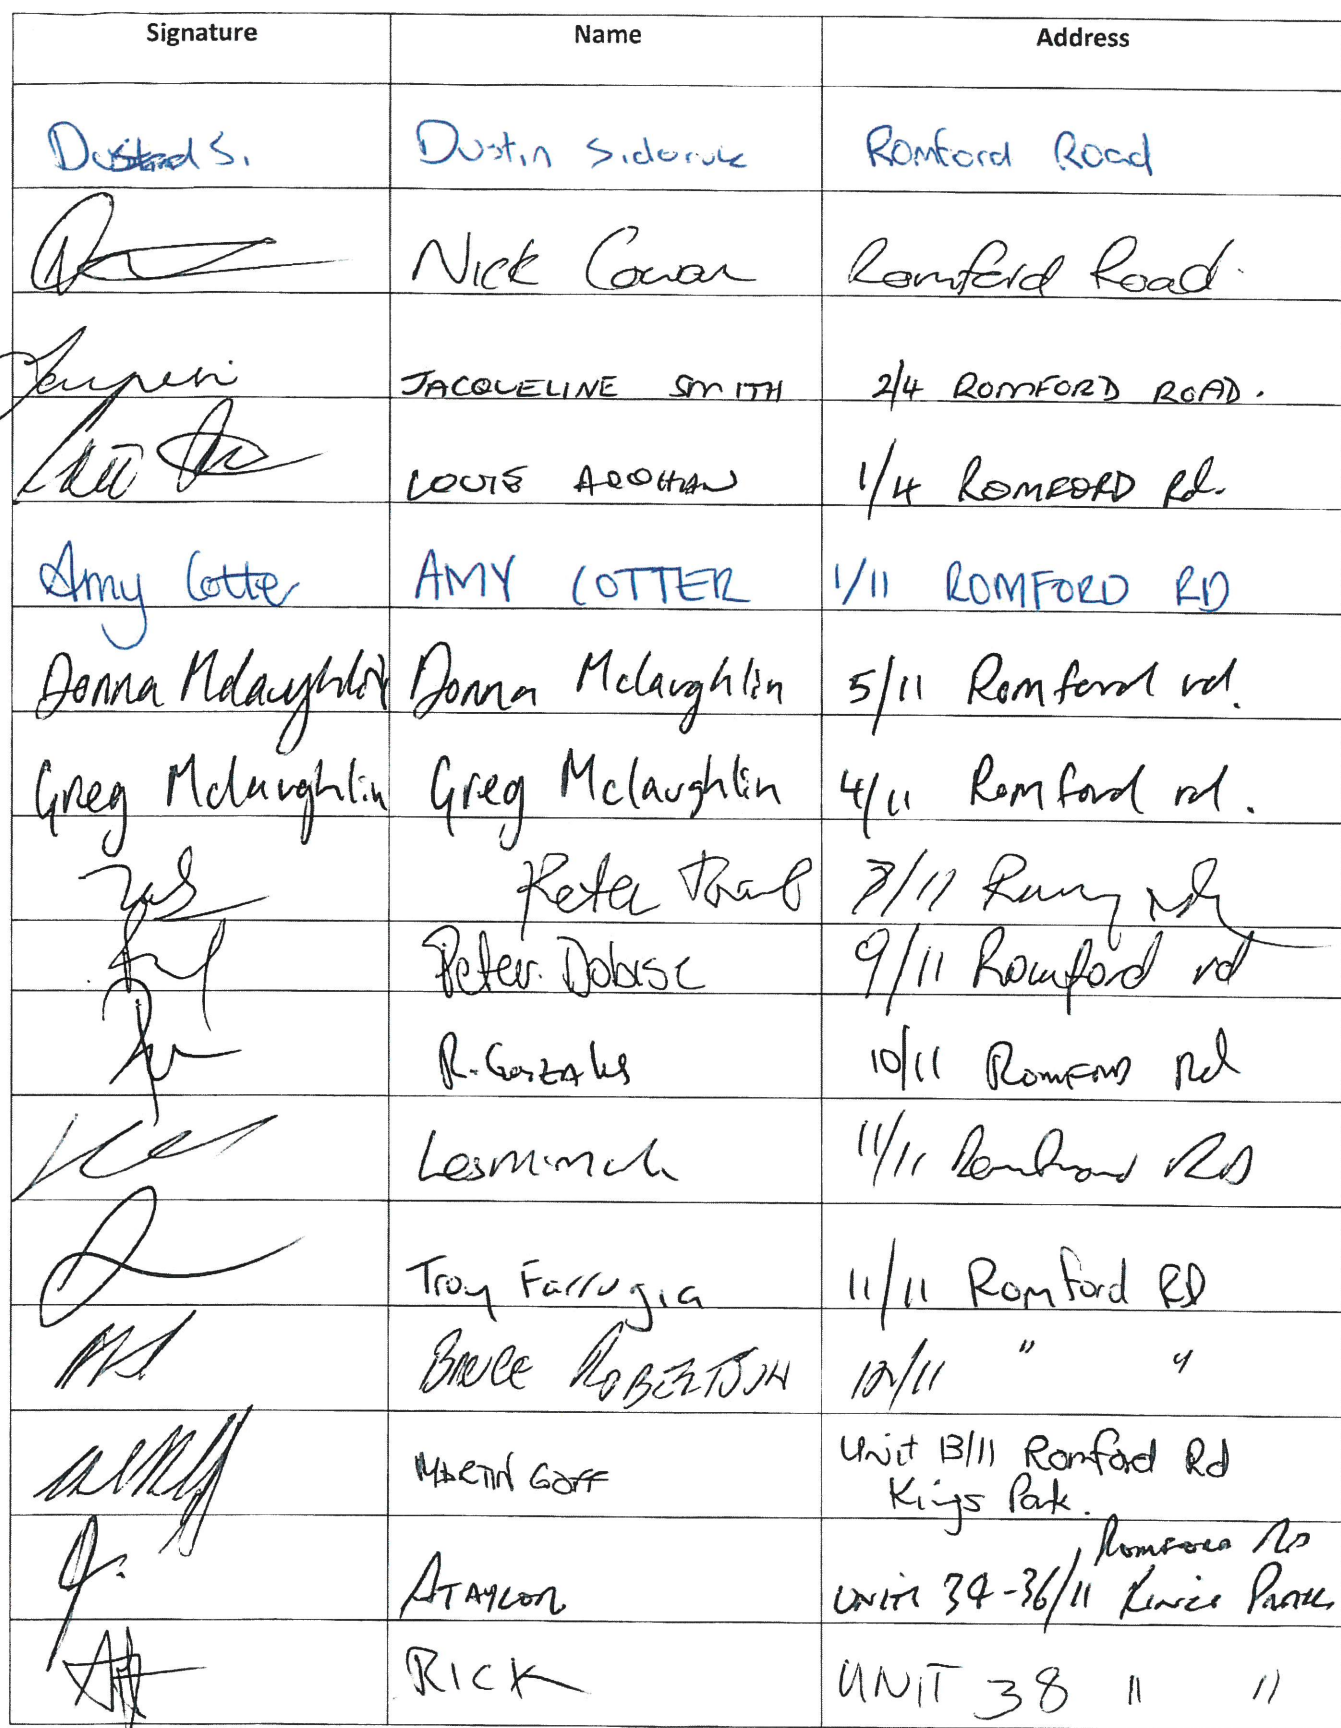 Signature Name Address
Dustin S. Dustin Romford Road
Nick Cowan Romford Road.
JACQUELINE SMITH 2/4 ROMFORD ROAD.
LOUIS 1/4 ROMFORD Rd.
Amy Cotter AMY COTTER 1/11 ROMFORD RD
Donna Mclaughlin Donna Mclaughlin 5/11 Romford rd.
Greg Mclaughlin Greg Mclaughlin 4/11 Romford rd.
Peter
Peter. 9/11 Romford rd
R. 10/11 ROMFORD Rd
11/11 Romford RD
Troy Farrugia 11/11 Romford RD
BRUCE ROBERTSON 12/11 " "
MARTIN GOFF Unit 13/11 Romford Rd
Kings Park.
ROMFORD RD
A TAYLOR UNIT 34-36/11 KINGS PARK
RICK UNIT 38 " "